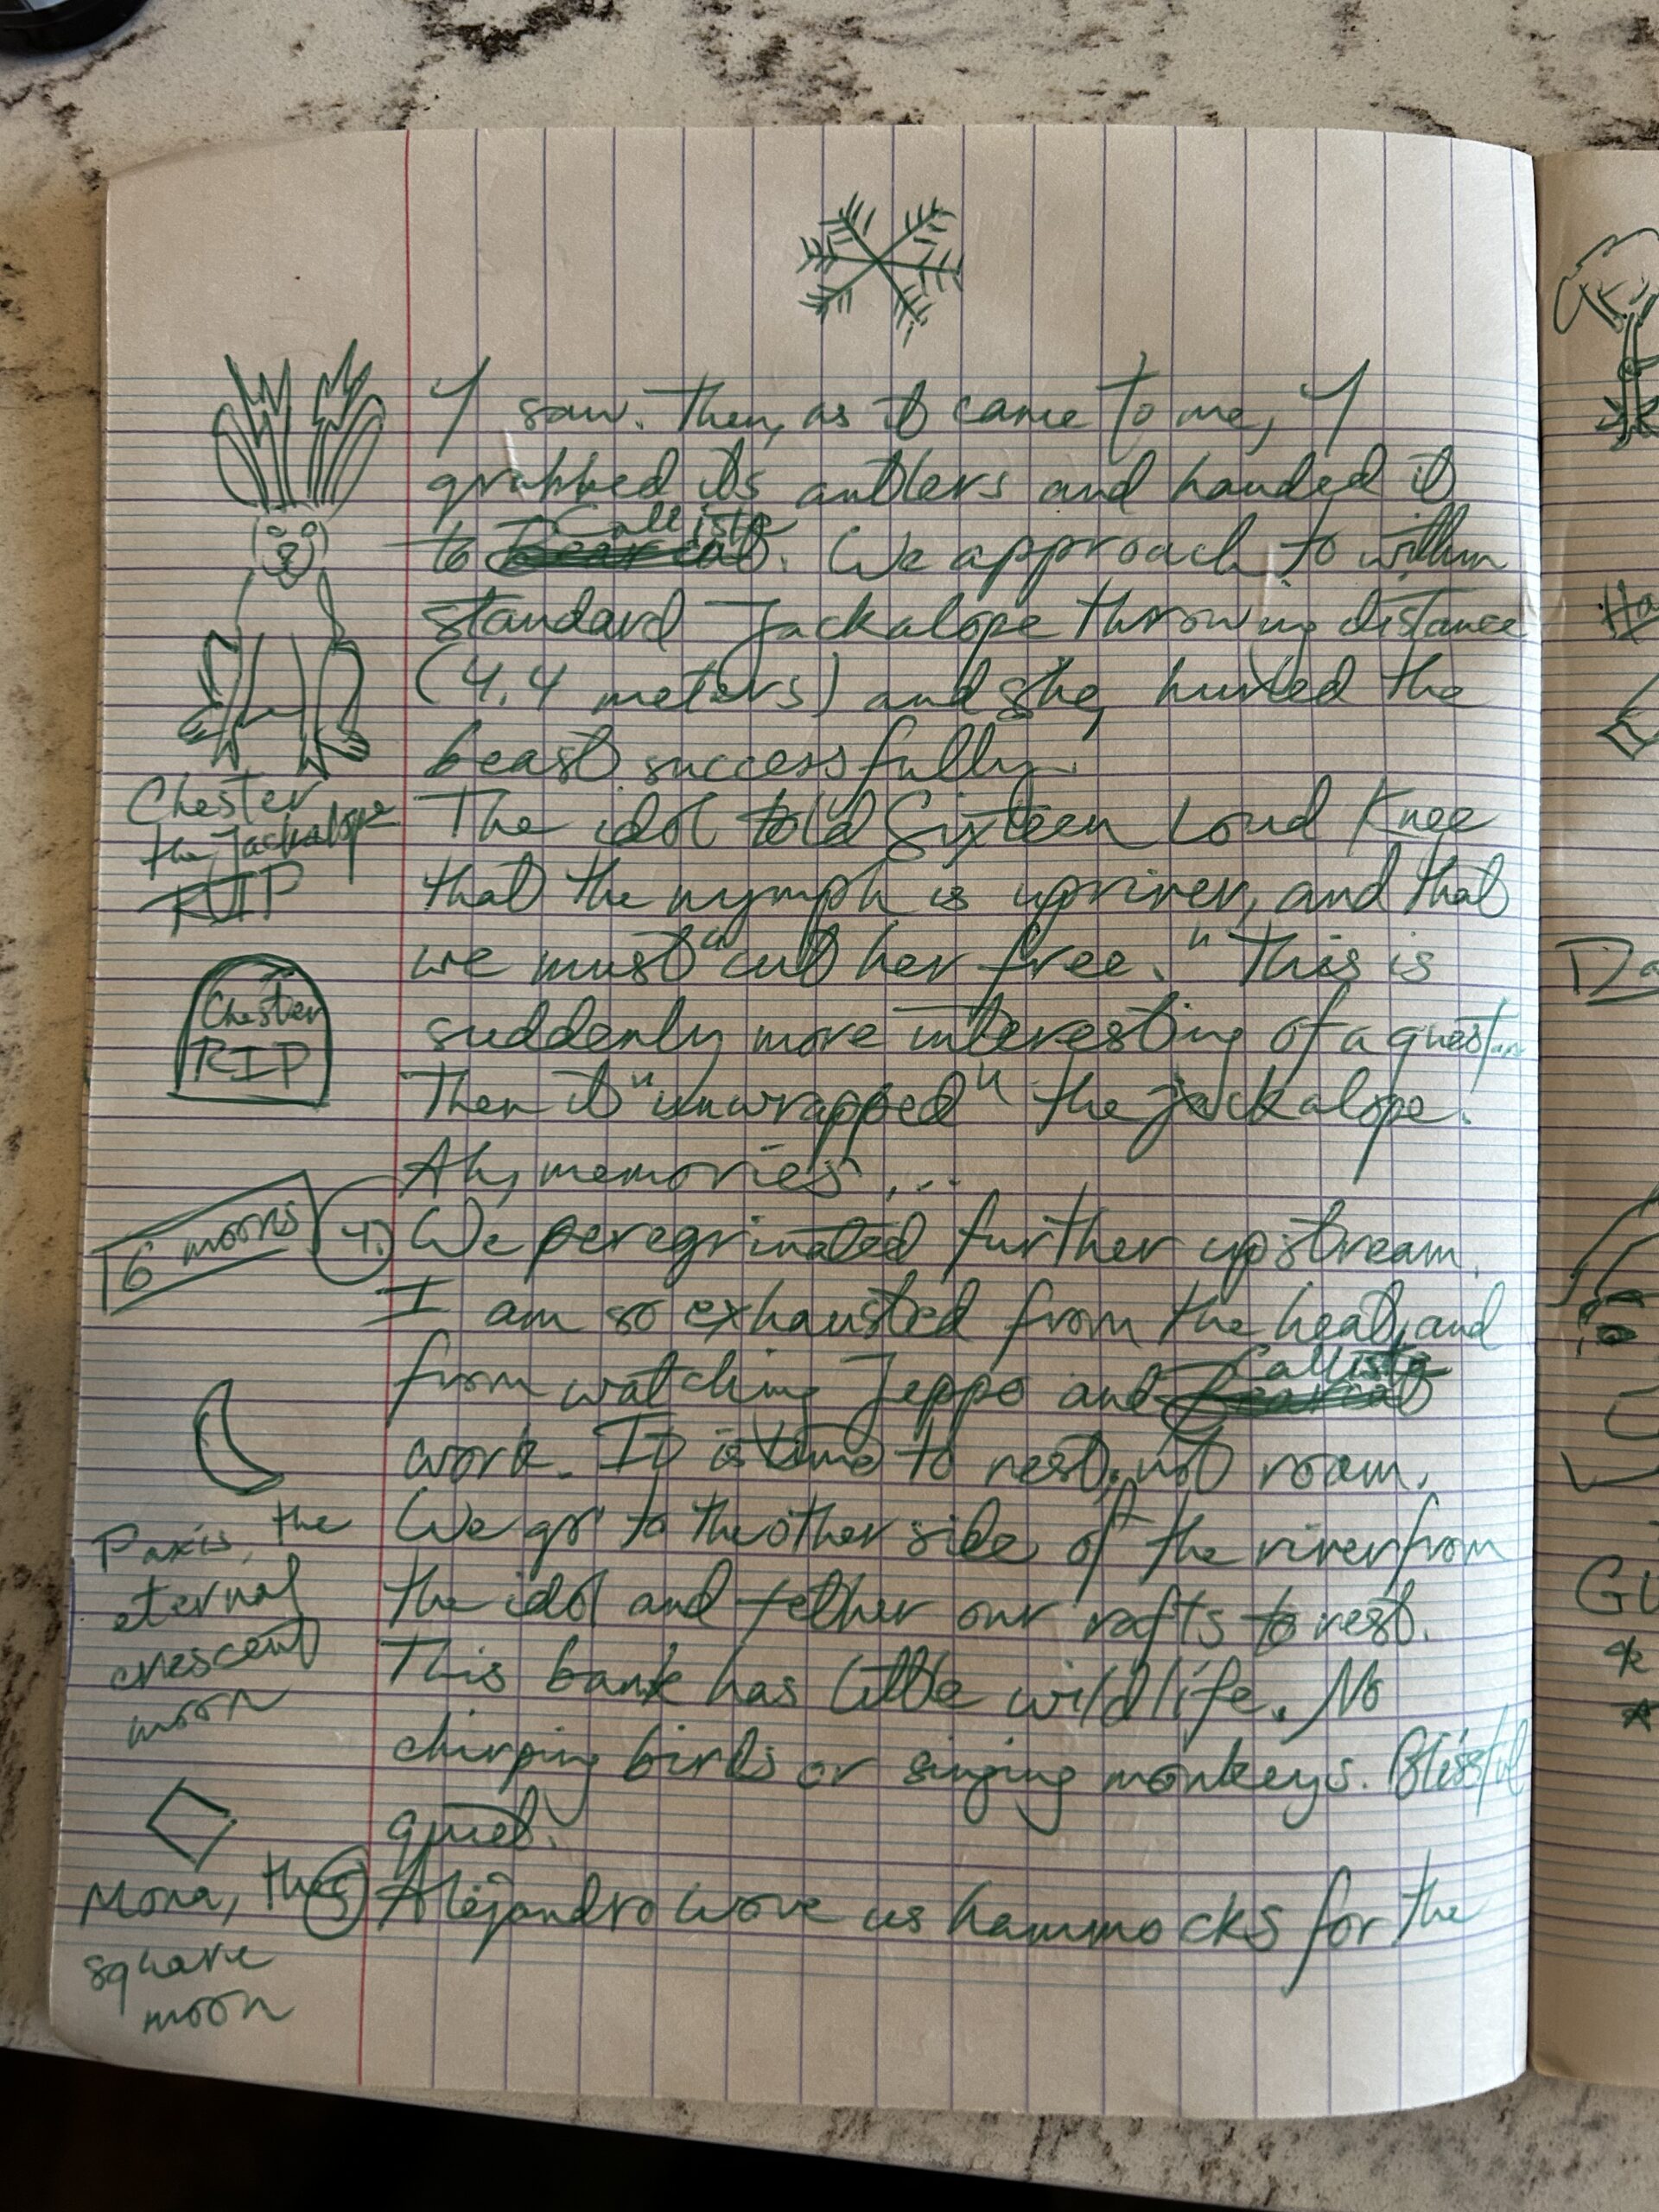 I saw. Then, as it came to me, I
grabbed its antlers and handed it
Callista
to Bearcat. We approach to within
standard Jackalope throwing distance
(4.4 meters) and she hurled the
beast successfully.
Chester
the Jackalope
RIP
The idol told Sixteen Loud Knee
that the nymph is upriver, and that
we must "cut her free." This is
suddenly more interesting of a quest.
Then it "unwrapped" the jackalope.
Ah, memories...
Chester
RIP
6 moons
4.) We peregrinated further upstream.
I am so exhausted from the heat, and
Callista
from watching Jeppo and Bearcat
work. It is time to rest, not roam.
We go to the other side of the river from
the idol and tether our rafts to rest.
This bank has little wildlife. No
chirping birds or singing monkeys. Blissful
quiet.
Paxis, the
eternal
crescent
moon
5) Alejandro wove us hammocks for the
Mona, the
square
moon
Ha
Da
Gu